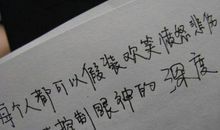 每个人都可以假装欢笑愤怒悲伤
控制眼神的深度